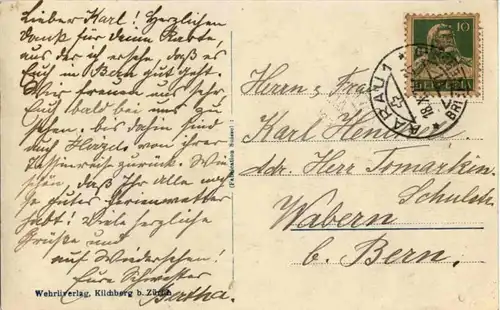 Lieber Karl! Herzlichen
Dank für deine Karte,
aus der ich ersehe, daß es
Euch in Bern gut geht.
Wir freuen uns sehr
Euch bald bei uns zu
sehen. bis dahin sind
auch von ihrer
zurück. Wie
schön, daß Ihr alle noch
so gutes Ferienwetter
habt! Viele herzliche
Grüße und
auf Wiedersehen!
Eure Schwester
Bertha.
Wehrliverlag, Kilchberg b. Zürich
10
HELVETIA
AARAU 1
Herrn u. Frau
Karl
adr. Herr Tomarkin
Schulstr.
Wabern
b. Bern.